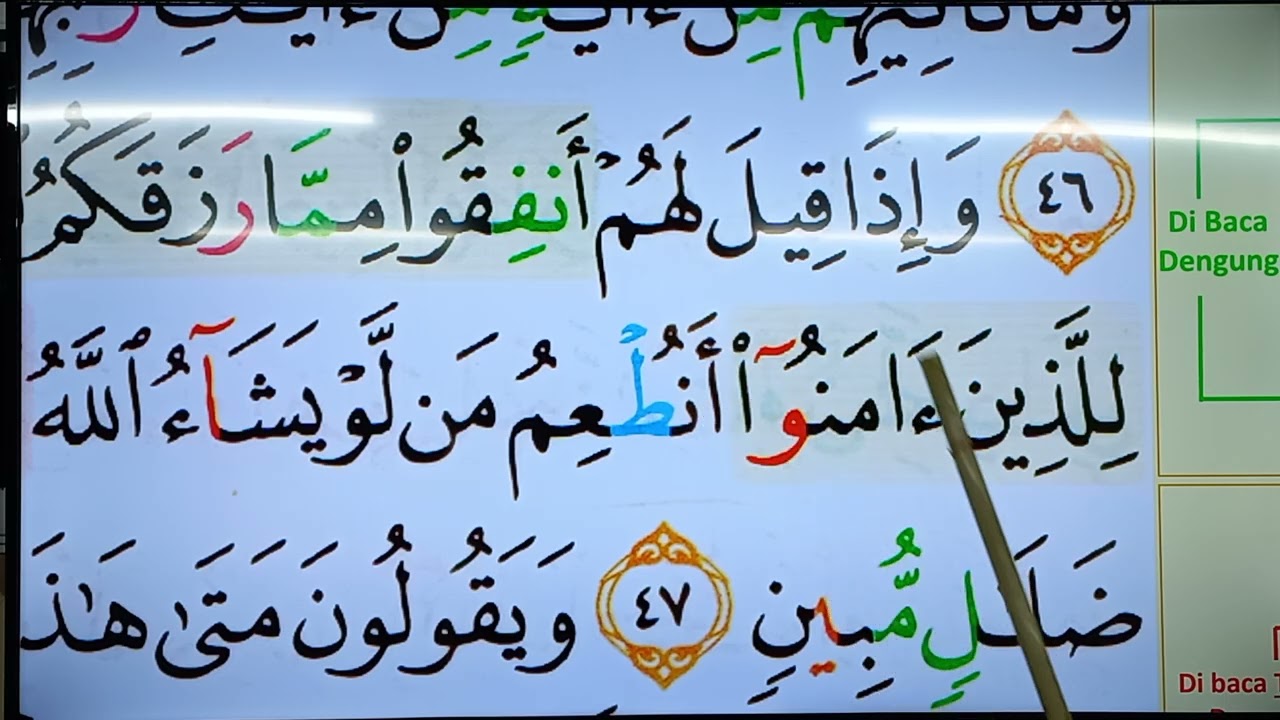 وَإِذَا قِيلَ لَهُمْ أَنفِقُوا۟ مِمَّا رَزَقَكُمُ ٤٦
لِلَّذِينَ ءَامَنُوٓا۟ أَنُطْعِمُ مَن لَّوْ يَشَآءُ ٱللَّهُ
ضَلَـٰلٍ مُّبِينٍ ٤٧ وَيَقُولُونَ مَتَىٰ هَـٰذَ
Di Baca
Dengung
Di baca